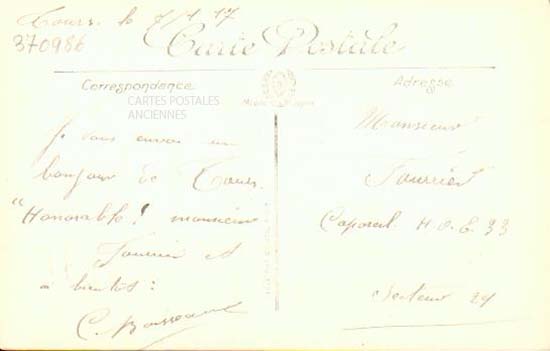 Tours. le 7/1 17
370986
Carte Postale
Correspondance
CARTES POSTALES
ANCIENNES
Je vous envoi un
bonjour de Tours.
"Honorable! monsieur
Fourrier et
a bientôt:
C.
Adresse
Monsieur
Fourrier
Caporal H.O.E. 33
Secteur 24